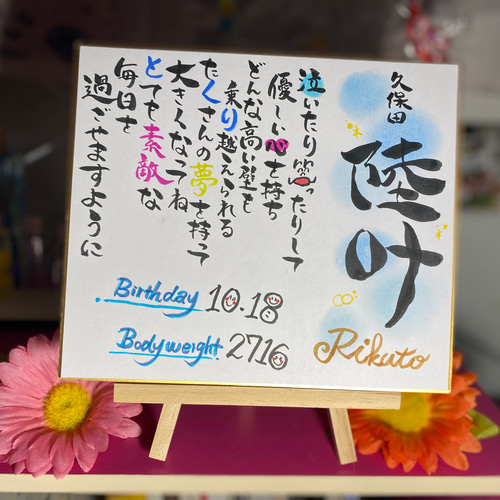 久保田
陸叶
Rikuto
泣いたり笑ったりして
優しい心を持ち
どんな高い壁も
乗り越えられる
たくさんの夢を持って
大きくなってね
とても素敵な
毎日を
過ごせますように
Birthday 10.18
Body weight 2716